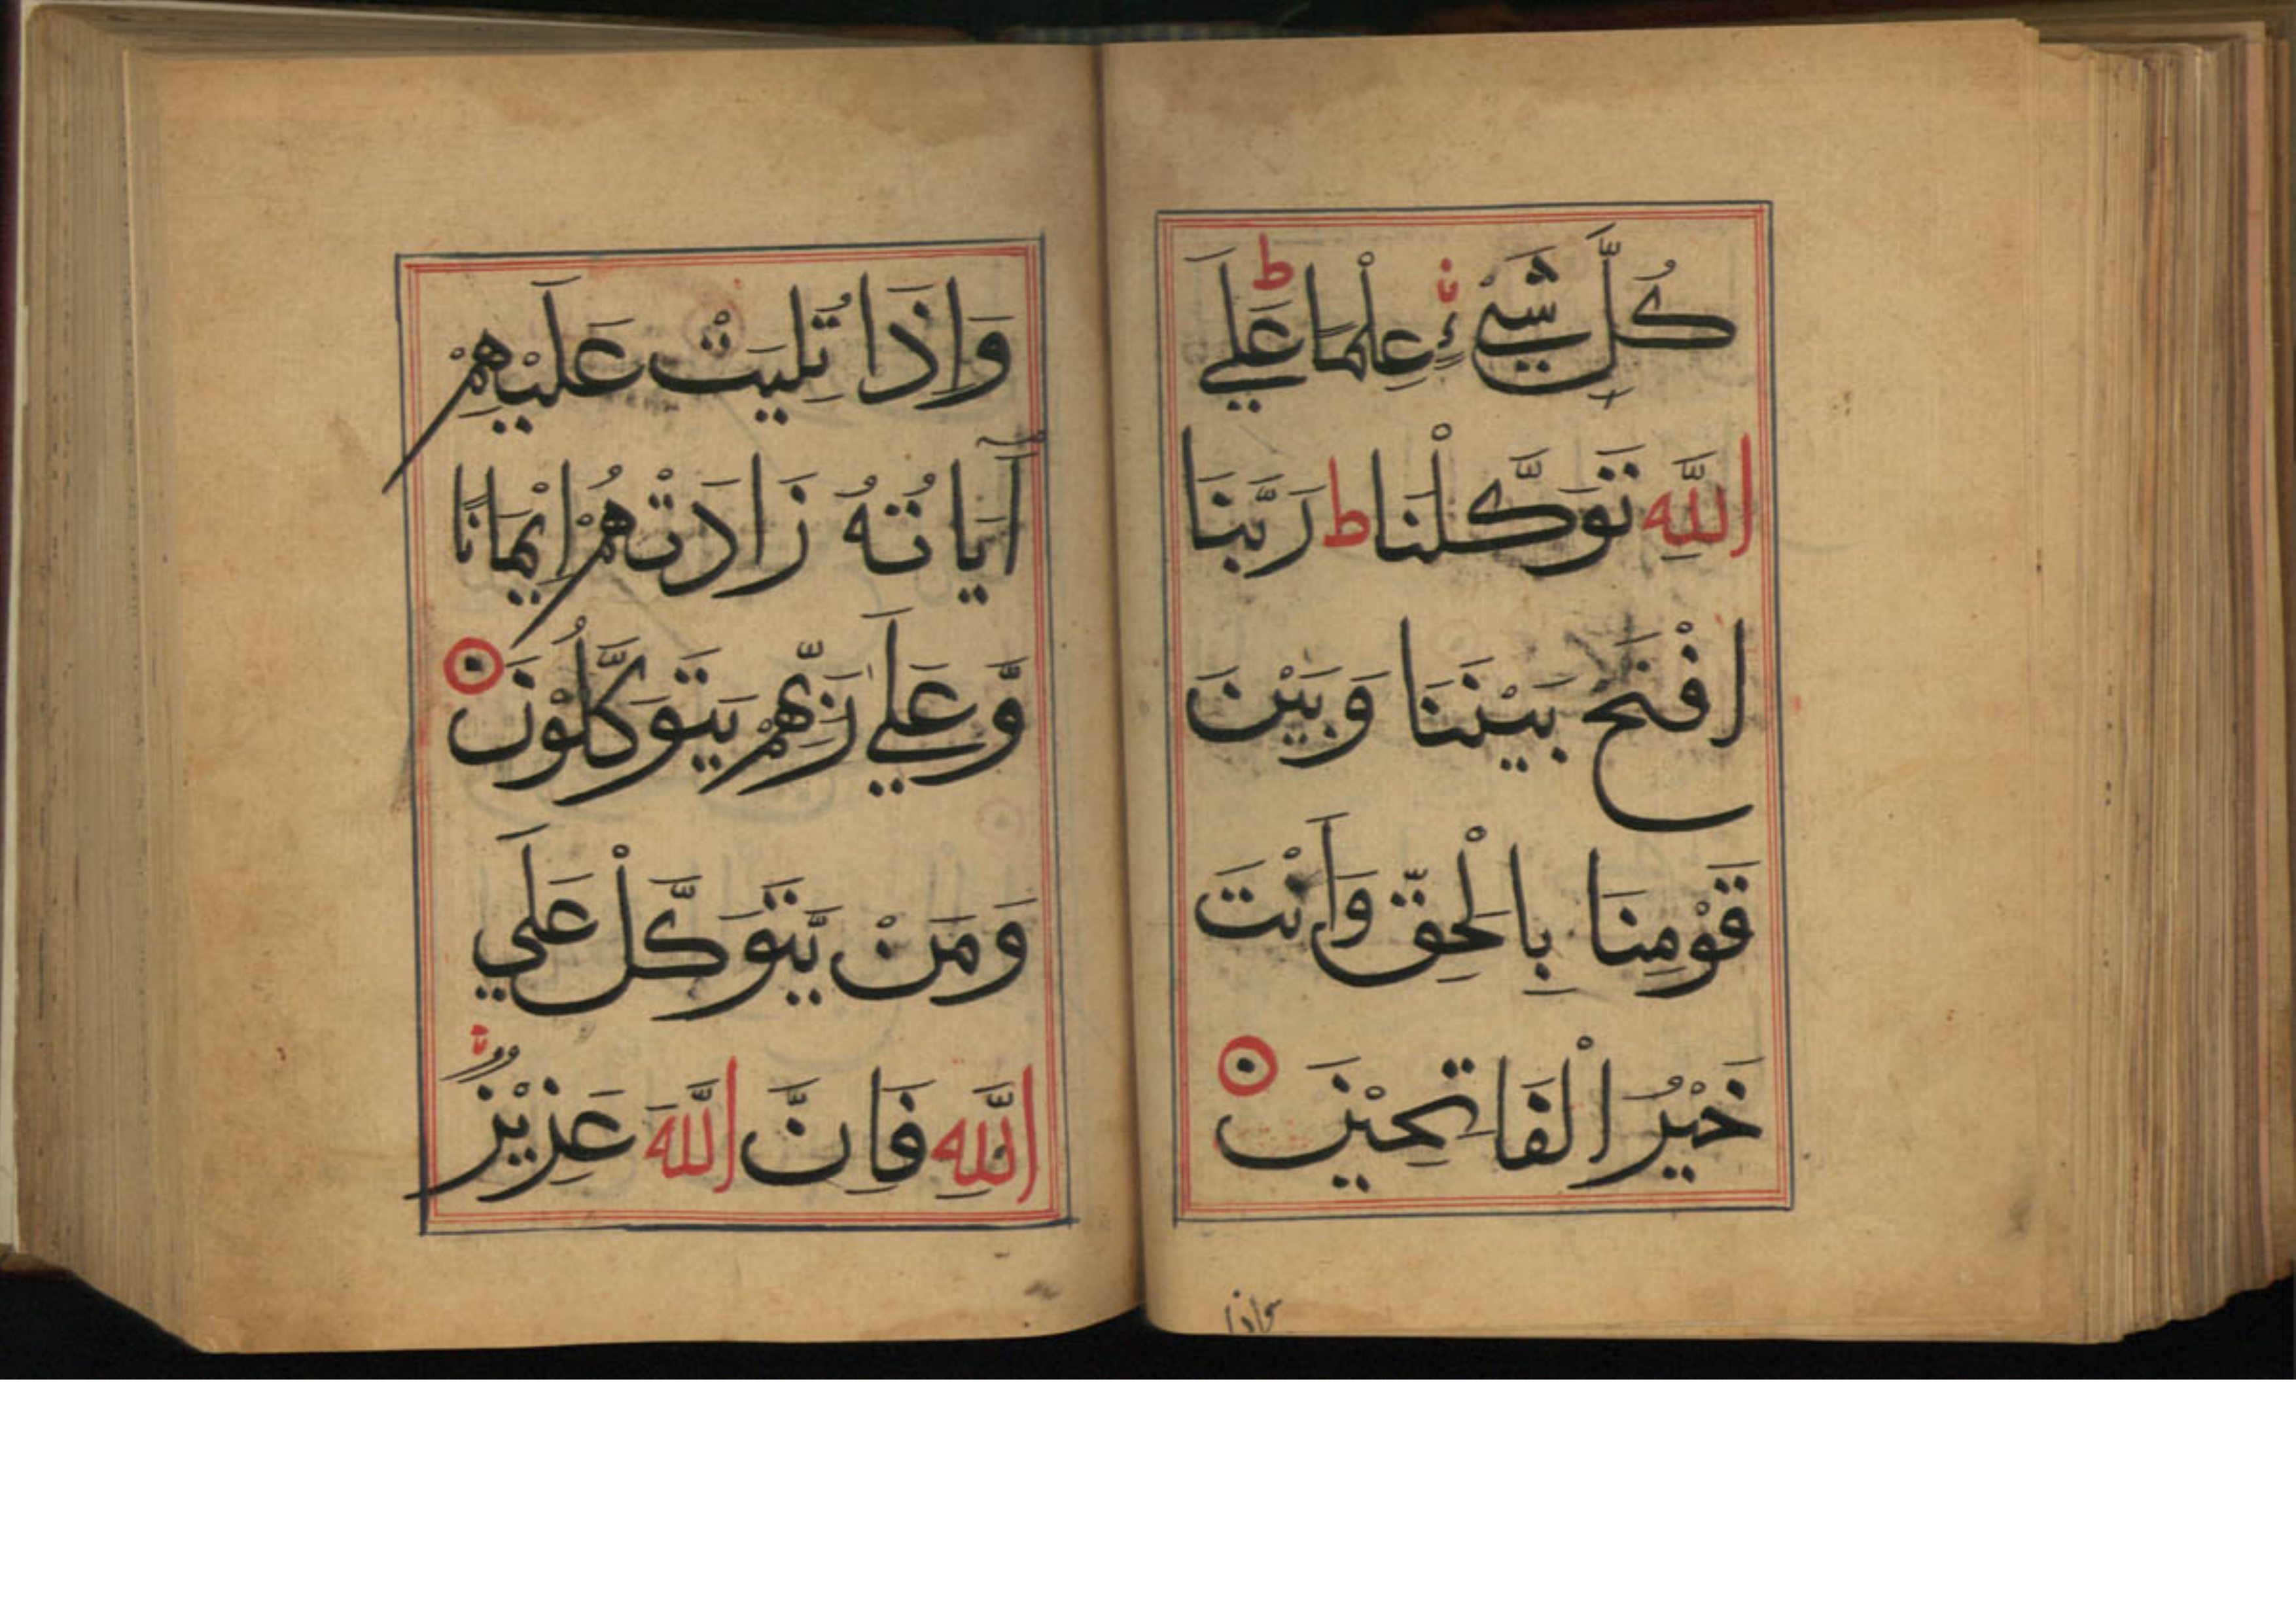 كُلَّ شَيْءٍ عِلْمًا ط عَلَي
اللَّهِ تَوَكَّلْنَا ط رَبَّنَا
افْتَحْ بَيْنَنَا وَبَيْنَ
قَوْمِنَا بِالْحَقِّ وَأَنْتَ
خَيْرُ الْفَاتِحِيْنَ
واذا
وَاِذَا تُلِيَتْ عَلَيْهِمْ
آيَاتُهُ زَادَتْهُمْ اِيْمَانًا
وَّعَلَي رَبِّهِمْ يَتَوَكَّلُوْنَ
وَمَنْ يَّتَوَكَّلْ عَلَي
اللَّهِ فَاِنَّ اللَّهَ عَزِيْزٌ